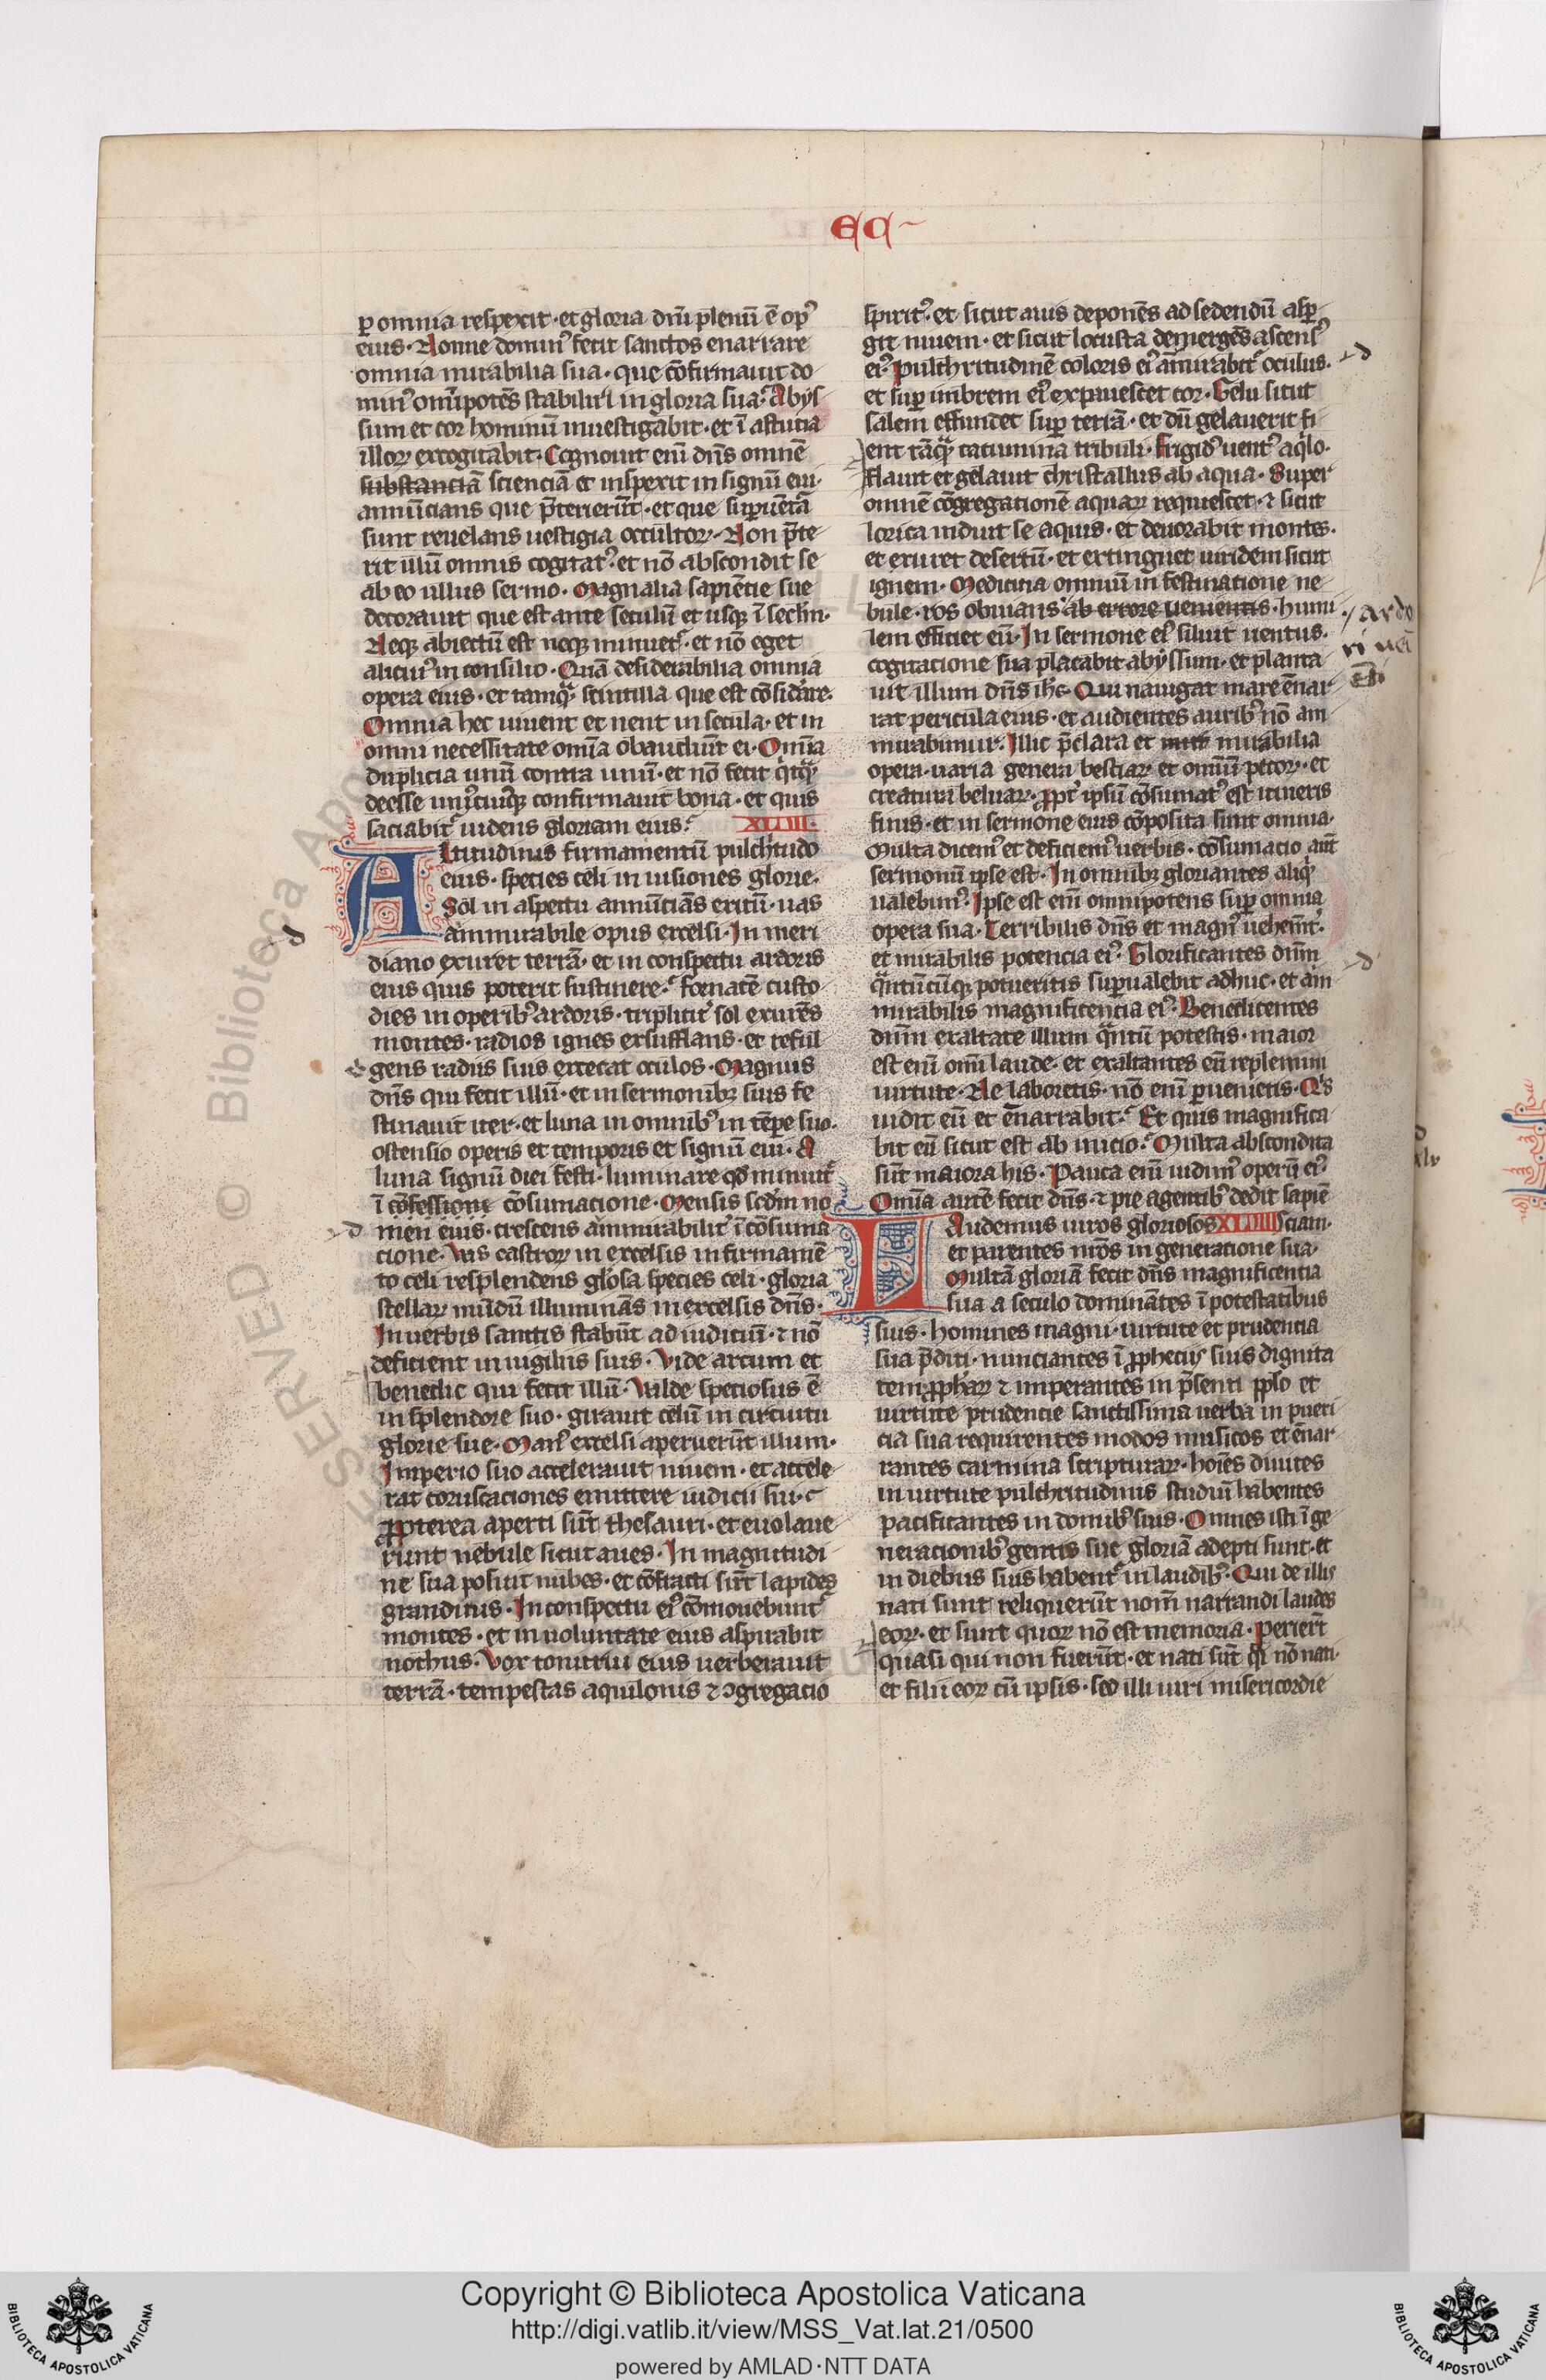 EC
ꝑ omnia respexit · et gloria dñi plenũ ẽ op᷒
eius · Nonne domin᷒ fecit sanctos enarrare
omnia mirabilia sua · que cõfirmauit do
min᷒ om̃ipotẽs stabiliri in gloria sua · Abys
sum et cor hominũ inuestigabit · et ĩ astutia
illoꝝ excogitabit · Cognouit enĩ dñs omnẽ
substanciã scienciã et inspexit in signũ eui ·
annũcians que p̃terierũt · et que suꝑuẽta
sunt reuelans uestigia occultoꝝ · Non p̃te
rit illũ omnis cogitat᷒ · et nõ abscondit se
ab eo ullus sermo · Magnalia sapiẽtie sue
decorauit que est ante seculũ et usqꝫ ĩ sec̃lm ·
Neqꝫ abiectũ est neqꝫ minuet᷑ · et nõ eget
alicui᷒ in consilio · Quã desiderabilia omnia
opera eius · et tamqᷓ scintilla que est cõsid̾are ·
Omnia hec uiuent et nent in secula · et in
omni necessitate om̃ia obaudiũt ei · Om̃ia
duplicia unũ contra unũ · et nõ fecit q̾cqᷓ
deesse uni᷒cuiqꝫ confirmauit bona · et quis
saciabit᷑ uidens gloriam eius · XLIII ·
Altitudinis firmamentũ pulch̾tudo
eius · species celi in uisiones glorie ·
Sol in aspectu annũciãs exitũ · uas
ammirabile opus excelsi · In meri
diano exuret terrã · et in conspectu ardoris
eius quis poterit sustinere · fornacẽ custo
dies in operib᷒ ardoris · triplicit᷑ sol exurẽs
montes · radios ignes exsufflans · et reful
gens radiis suis excecat oculos · Magnus
dñs qui fecit illũ · et in sermonibꝫ suis fe
stinauit iter · et luna in omnib᷒ in tẽpe suo ·
ostensio operis et temporis et signũ eui · A
luna signũ diei festi · luminare qđ minuit᷑
ĩ cõfessione cõsumacione · Mensis scđm no
men eius · crescens ammirabilit᷑ ĩ cõsuma
cione · Vas castroꝝ in excelsis in firmamẽ
to celi resplendens gl̾osa species celi · gloria
stellaꝝ mũdũ illuminãs in excelsis dñs ·
In uerbis sanctis stabũt ad iudiciũ · ⁊ nõ
deficient in uigiliis suis · Vide arcum et
benedic qui fecit illũ · Valde speciosus ẽ
in splendore suo · girauit celũ in circuitu
glorie sue · Man᷒ excelsi aperuerũt illum ·
Imperio suo accelerauit niuem · et accele
rat coruscaciones emittere iudicii sui ·
Propterea aperti sũt thesauri · et euolaue
runt nebule sicut aues · In magnitudi
ne sua posuit nubes · et cõfracti sũt lapides
grandinis · In conspectu ei᷒ cõmouebunt᷑
montes · et in uoluntate eius aspirabit
nothus · Vox tonitrui eius uerberauit
terrã · tempestas aquilonis ⁊ ꝯgregacio
spirit᷒ · et sicut auis deponẽs ad sedendũ asꝑ
git niuem · et sicut locusta demergẽs ascens᷒
ei᷒ pulchritudinẽ coloris ei᷒ ãmirabit᷑ oculus ·
et suꝑ imbrem ei᷒ expauescet cor · Gelu sicut
salem effundet suꝑ terrã · et dũ gelauerit fi
ent tãqᷓ cacumina tribuli · Frigid᷒ uent᷒ aq̾lo ·
flauit et gelauit christallus ab aqua · Super
omnẽ cõgregationẽ aquaꝝ requiescet · ⁊ sicut
lorica induit se aquis · et deuorabit montes ·
et exuret desertũ · et extinguet uiridem sicut
ignem · Medicina omniũ in festinatione ne
bule · ros obuians ab errore uenientis · humi
lem efficiet eũ · In sermone ei᷒ siluit uentus ·
cogitacione sua placabit abyssum · et planta
uit illum dñs ih̃c · Qui nauigat mare ẽnar
rat pericula eius · et audientes aurib᷒ nõ am
mirabimur · Illic p̃clara et mirabilia
opera · uaria genera bestiaꝝ et omĩũ pecoꝝ · et
creatura beluaꝝ · Propt᷑ ipsũ cõsumat᷒ est itineris
finis · et in sermone eius cõposita sunt omnia ·
Multa dicem᷒ et deficiem᷒ uerbis · cõsumacio aũt
sermonũ ipse est · In omnibꝫ gloriantes aliq̾
ualebim᷒ · Ipse est enĩ omnipotens suꝑ omnia
opera sua · Terribilis dñs et magn᷒ uehem̃t᷑ ·
et mirabilis potencia ei᷒ · Glorificantes dñm
qᷓntũcũqꝫ potueritis suꝑualebit adhuc · et am
mirabilis magnificencia ei᷒ · Benedicentes
dñm exaltate illum qᷓntũ potestis · maior
est enĩ om̃i laude · et exaltantes eũ replemini
uirtute · Ne laboretis · nõ enĩ ꝑuenietis · Q̾s
uidit eũ et ẽnarrabit · Et quis magnifica
bit eũ sicut est ab inicio · Multa abscondita
sũt maiora his · Pauca enĩ uidim᷒ operũ ei᷒ ·
Om̃ia autẽ fecit dñs · ⁊ pie agentib᷒ dedit sapiẽ
Laudemus uiros gloriosos XLIIII sciam ·
et parentes nr̃os in generatione sua ·
Multã gloriã fecit dñs magnificentia
sua a seculo dominãtes ĩ potestatibus
suis · homines magni · uirtute et prudentia
sua p̃diti · nunciantes ĩ ꝓphetis suis dignita
tem ꝓphaꝝ ⁊ imperantes in p̃senti pplo et
uirtute prudencie sanctissima uerba in pueri
cia sua requirentes modos musicos et ẽnar
rantes carmina scripturaꝝ · hoĩes diuites
in uirtute pulchritudinis studiũ habentes
pacificantes in domib᷒ suis · Omnes isti ĩ ge
neracionib᷒ gentis sue gloriã adepti sunt · et
in diebus suis habent᷑ in laudib᷒ · Qui de illis
nati sunt reliquerũt nom̃ narrandi laudes
eoꝝ · et sunt quoꝝ nõ est memoria · Perierũt
quasi qui non fuerũt · et nati sũt q̾i nõ nati ·
et filii eoꝝ cũ ipsis · seď illi uiri misericordie
ardo
ri ueĩ
Copyright © Biblioteca Apostolica Vaticana
http://digi.vatlib.it/view/MSS_Vat.lat.21/0500
powered by AMLAD·NTT DATA
BIBLIOTECA APOSTOLICA VATICANA
BIBLIOTECA APOSTOLICA VATICANA